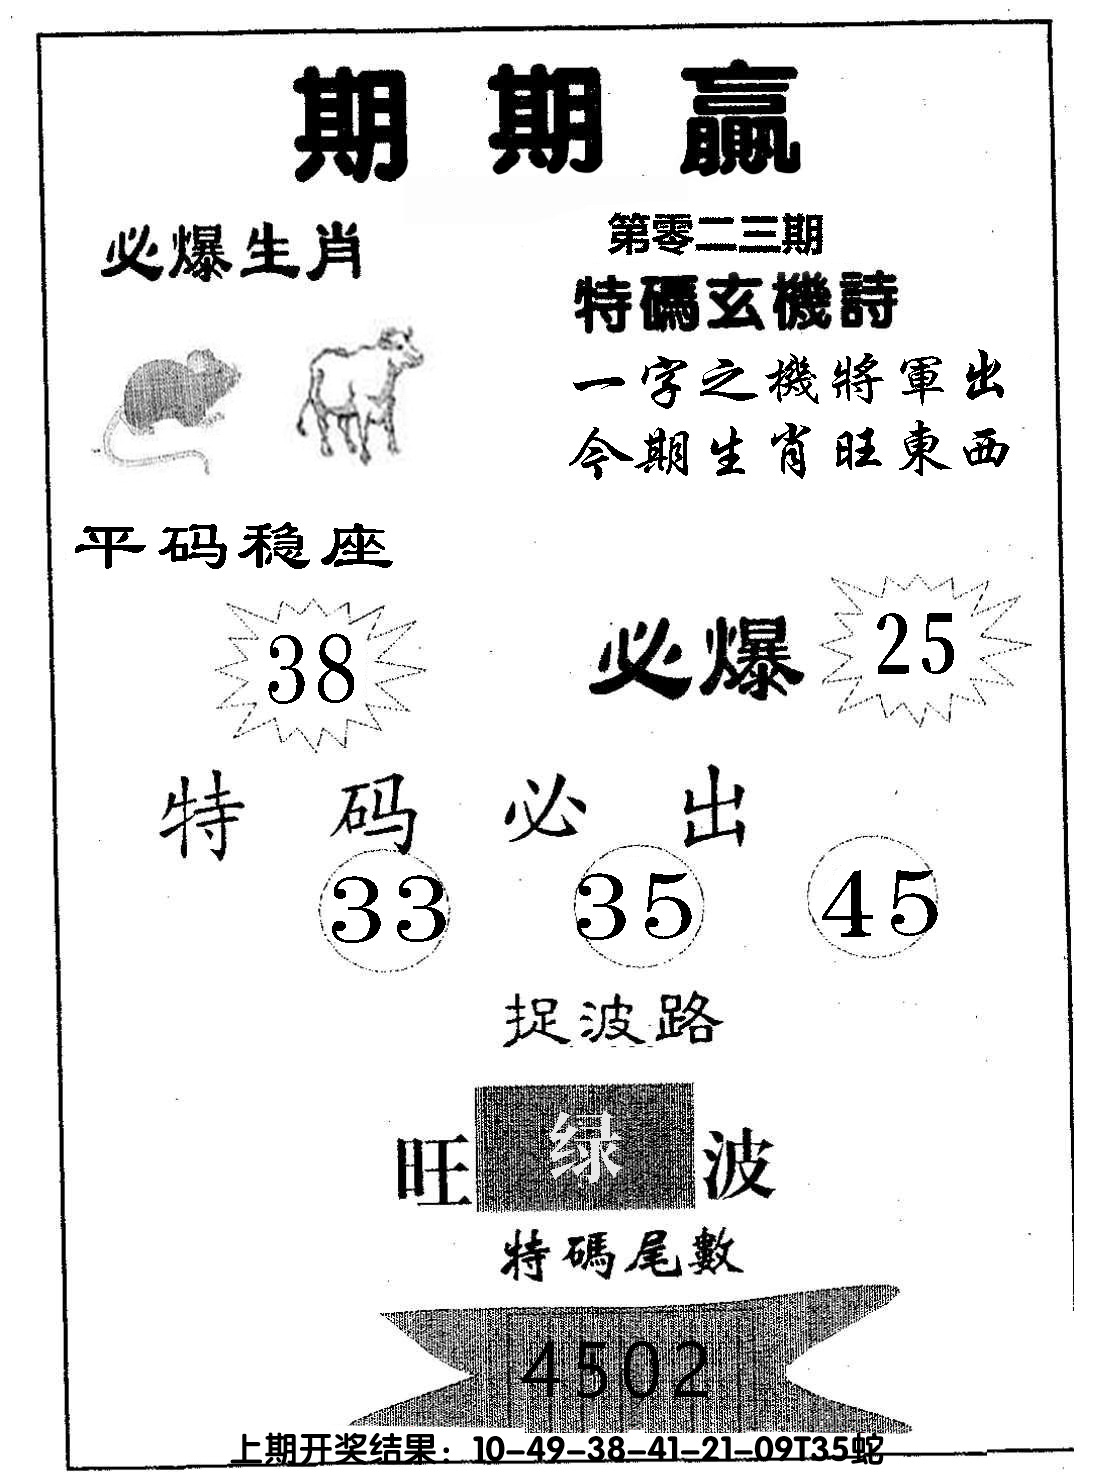 期期赢
必爆生肖
第零二三期
特碼玄機詩
一字之機將軍出
今期生肖旺東西
平码稳座
38
必爆 25
特码必出
33 35 45
捉波路
旺 绿 波
特碼尾數
4502
上期开奖结果：10-49-38-41-21-09T35蛇